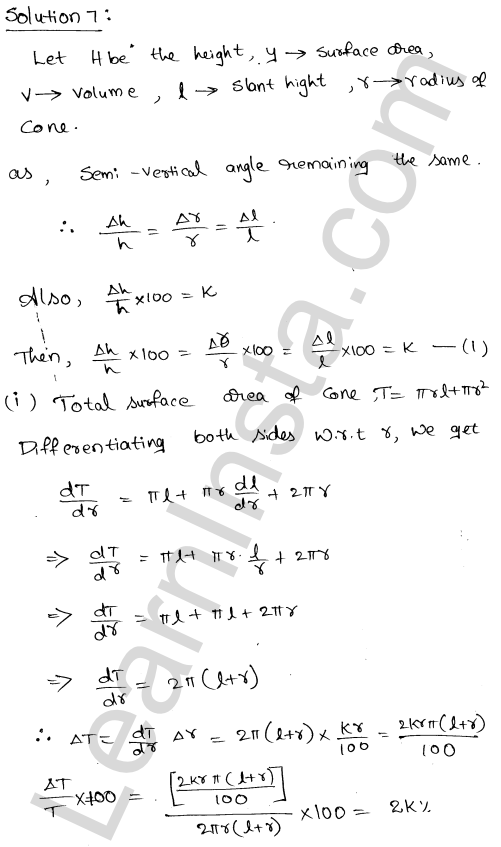 Solution 7:
Let H be the height, y → surface area,
V → Volume, l → Slant hight, r → radius of
Cone.
as, Semi-vertical angle remaining the same.
∴ Δh/h = Δr/r = Δl/l.
Also, Δh/h × 100 = K
Then, Δh/h × 100 = Δr/r × 100 = Δl/l × 100 = K — (1)
(i) Total surface area of Cone, T = πrl + πr²
Differentiating both sides w.r.t r, we get
dT/dr = πl + πr dl/dr + 2πr
⇒ dT/dr = πl + πr · l/r + 2πr
⇒ dT/dr = πl + πl + 2πr
⇒ dT/dr = 2π(l+r)
∴ ΔT = dT/dr Δr = 2π(l+r) × Kr/100 = 2Krπ(l+r)/100
ΔT/T × 100 = [2Krπ(l+r)/100]/2πr(l+r) × 100 = 2K%
LearnInsta.com